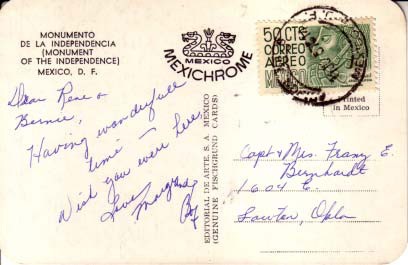 MONUMENTO
DE LA INDEPENDENCIA
(MONUMENT
OF THE INDEPENDENCE)
MEXICO, D. F.
MEXICO
MEXICHROME
50 CTS
CORREO
AEREO
MEXICO
Printed
in Mexico
Dear Rene &
Bernie,
Having wonderfull
time –
Wish you were here
Love,
EDITORIAL DE ARTE, S. A. MEXICO
(GENUINE FISCHGRUND CARDS)
Capt & Mrs. Franz E.
Bernhardt
1604 E
Lawton, Okla